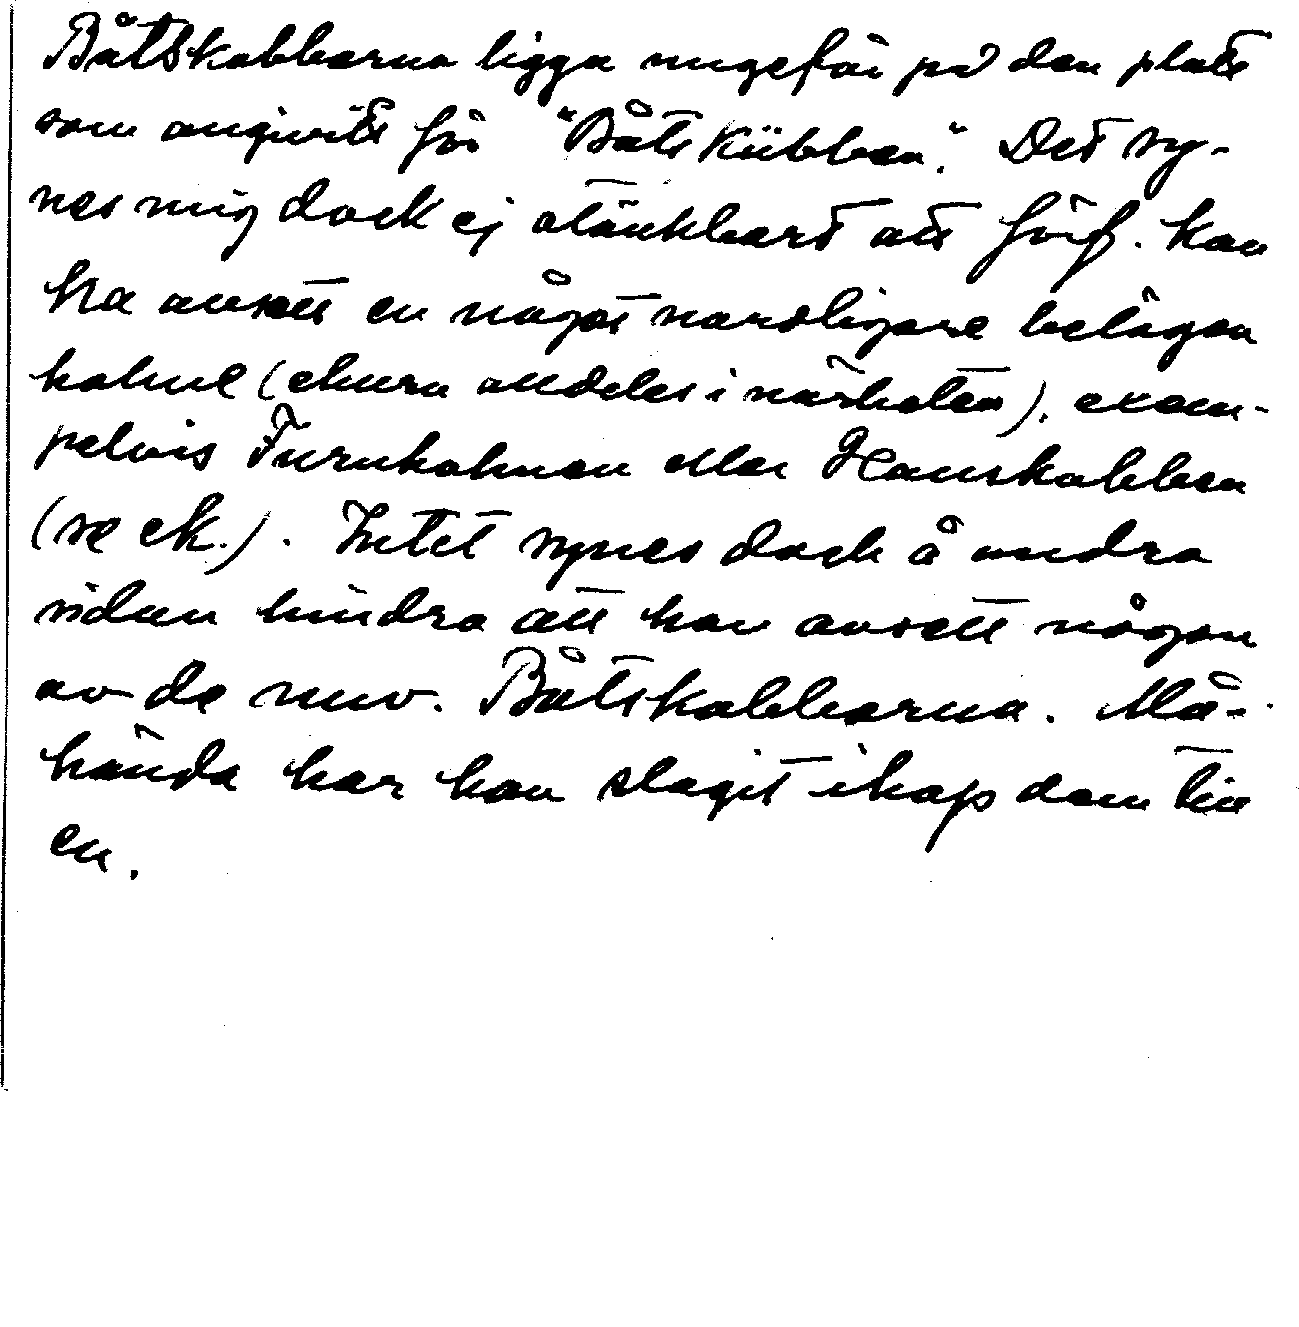 Båtskobbarna ligga ungefär på den plats
som angivits för "Båts Kübben". Det sy-
nes mig dock ej otänkbart att förf. kan
ha avsett en något nordligare belägen
holme (ehuru alldeles i närheten), exem-
pelvis Furuholmen eller Hamskobben
(se ek.). Intet synes dock å andra
sidan hindra att han avsett någon
av de nuv. Båtskobbarna. Må-
hända har han slagit ihop dem till
en.